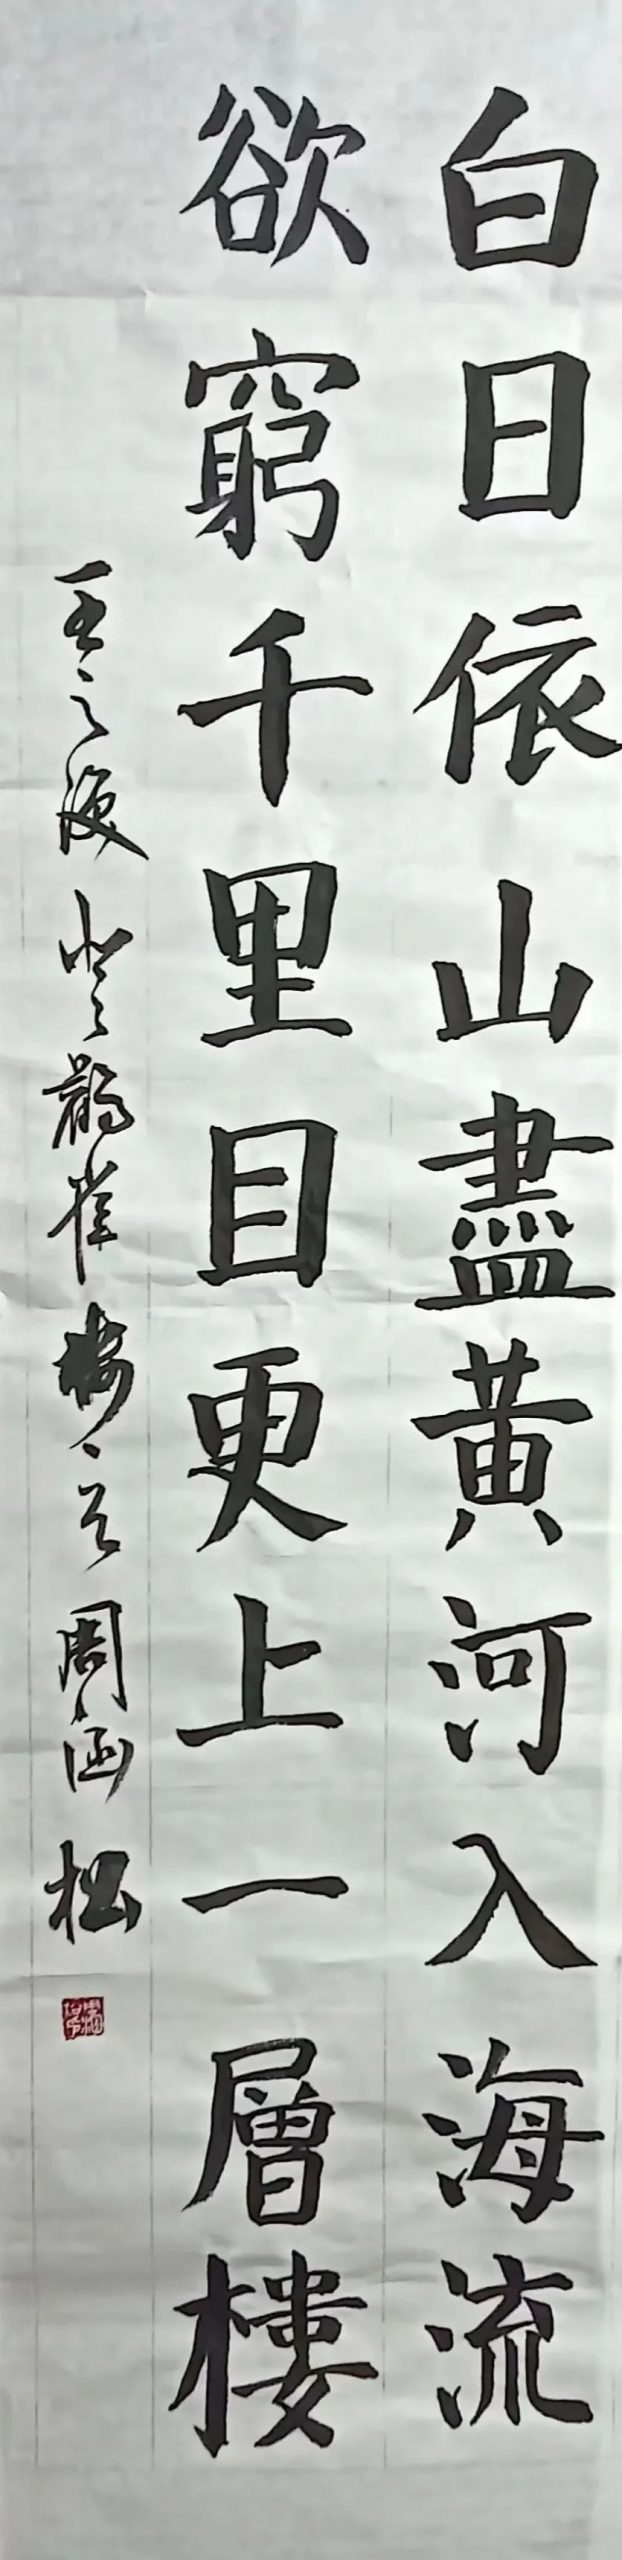 白日依山盡黃河入海流
欲窮千里目更上一層樓
王之渙登鸛雀樓之一周函松